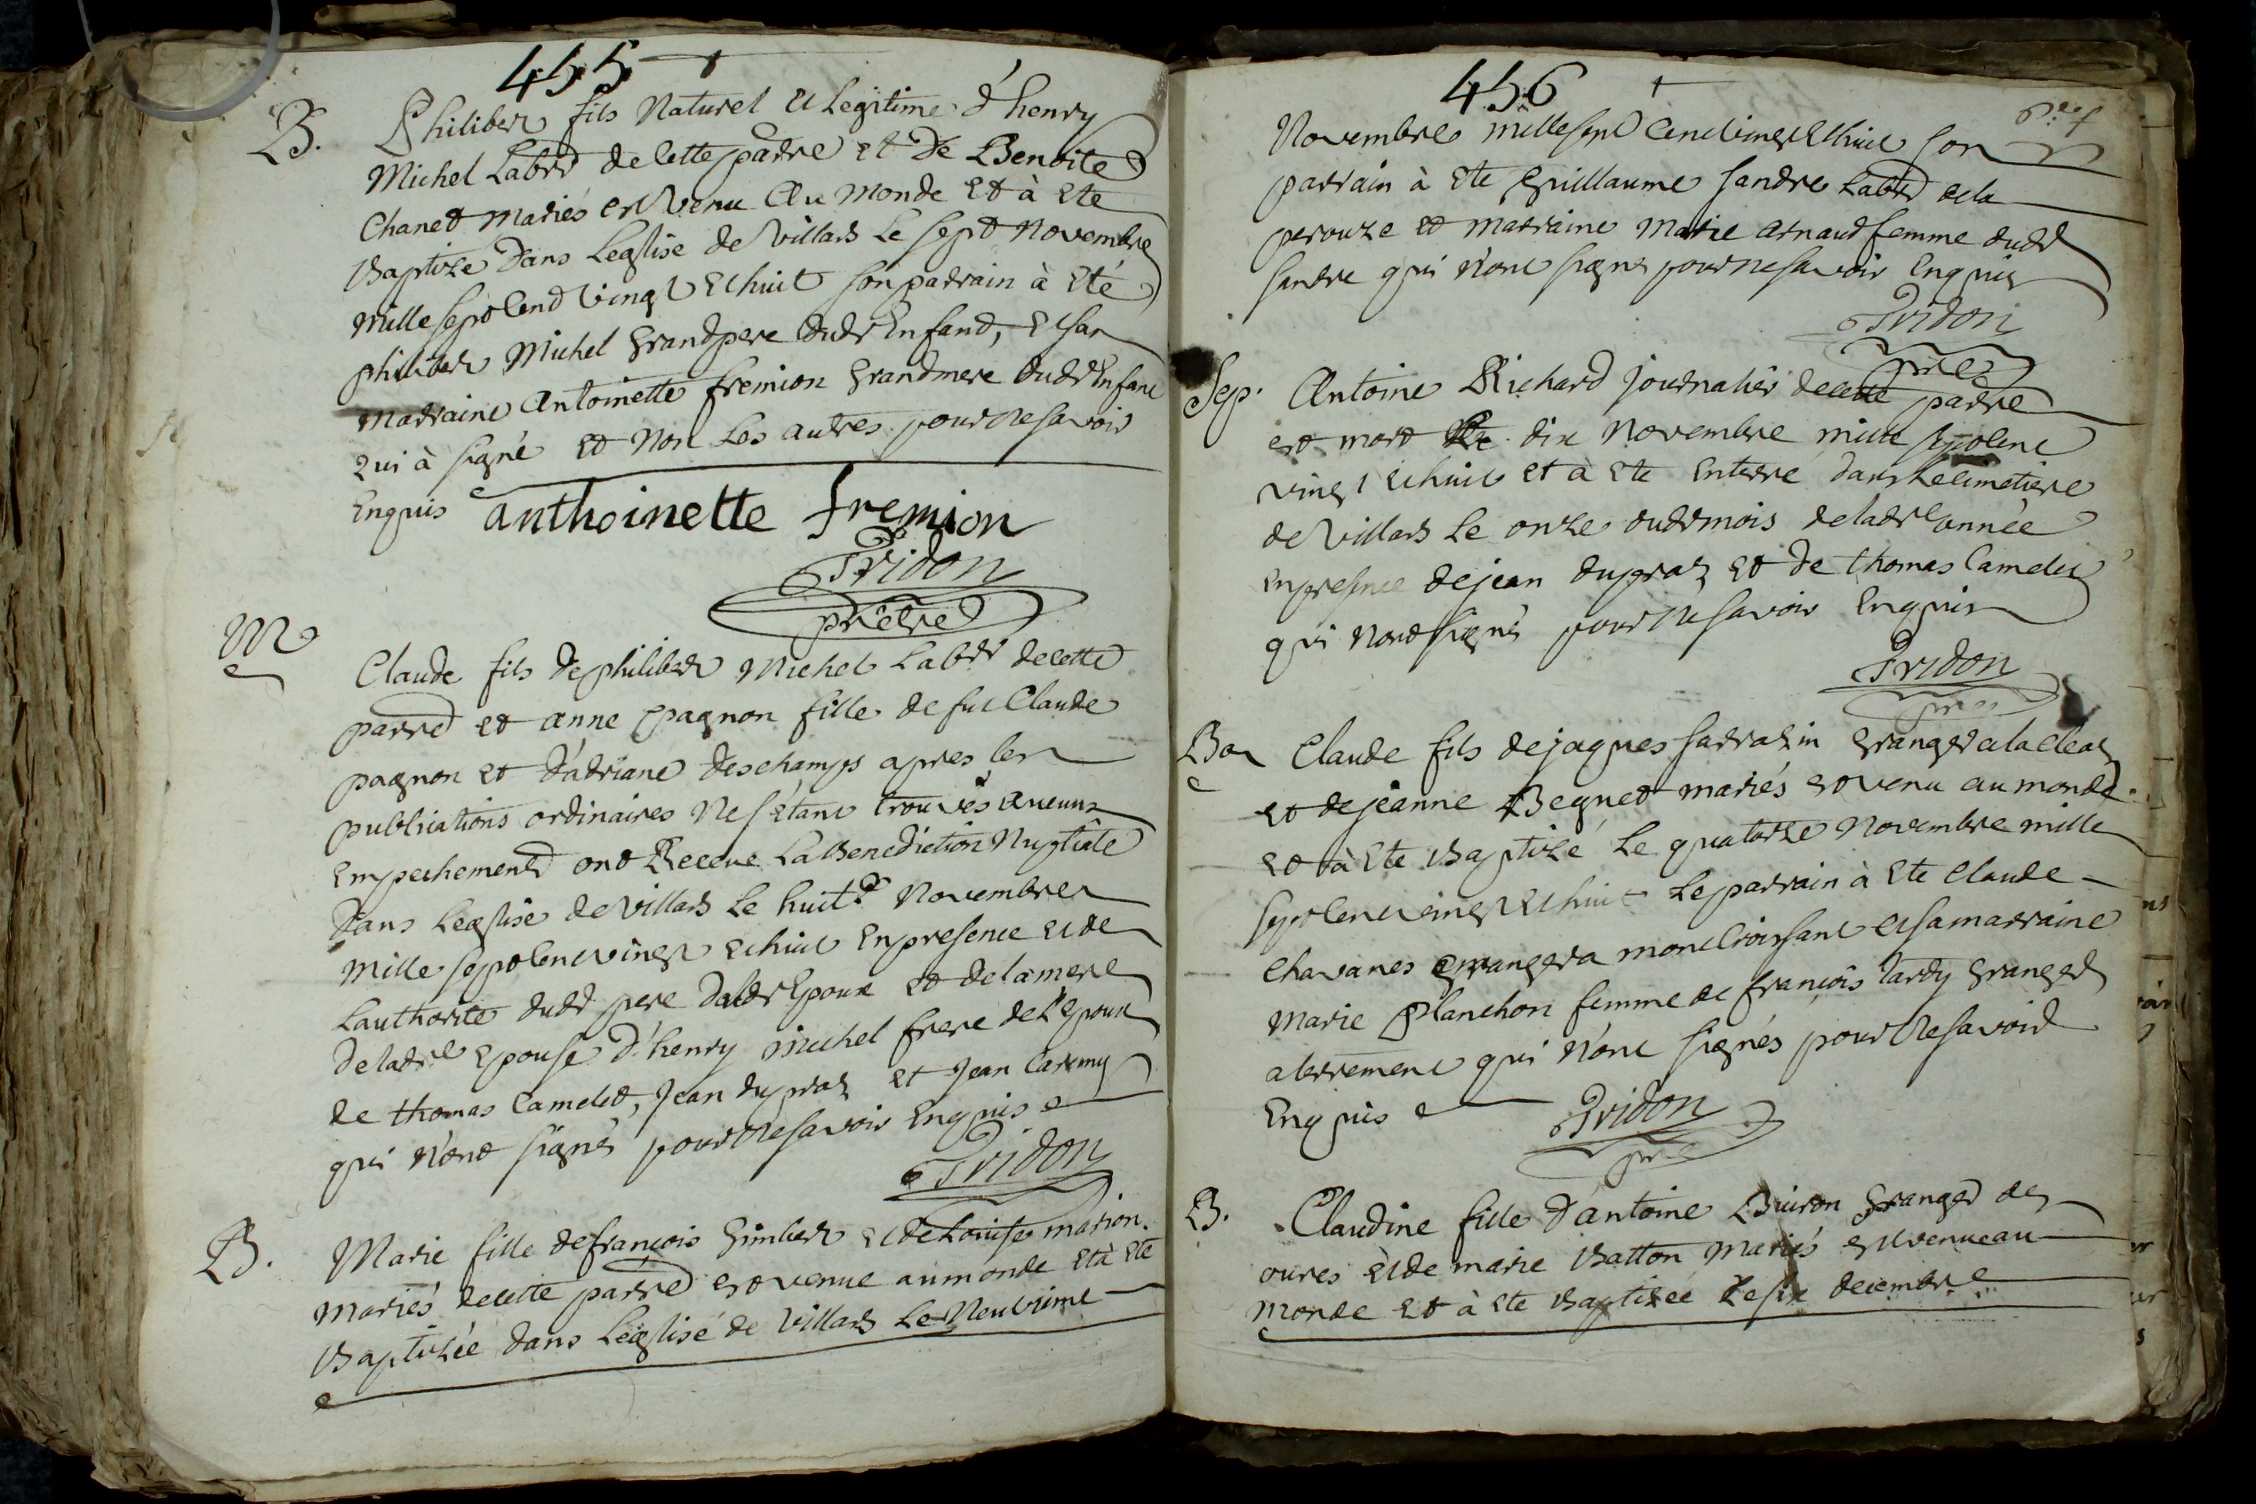 455
B. Philiber fils Naturel et Legitime d'henry
Michel Labr de cette parre et de Benoite
Chanet mariés est venu au monde et à ete
Baptize dans Leglise de Villars Le sept Novembre
mille sept cent vingt et huit son parrain à eté
philiber Michel Grandpere dudt Enfant, et sa
marraine antoinette fremion Grandmere dudt Enfant
qui à signé et Non Les autres pour ne savoir
Enquis anthoinette fremion
Tridon
prêtre
M
Claude fils de philiber Michel Labr de cette
parre et anne pagnon fille de fut Claude
pagnon et d'adriane deschamps apres les
publications ordinaires Ne s'étant trouvés aucun
Empechement ont Receue La Benediction Nuptiale
dans Leglise de Villars Le huite Novembre
mille sept cent vingt et huit En presence et de
Lauthorité dudt pere dudt Epoux et de la mere
de ladte Epouse d'henry michel frere de l'Epoux
de thomas Camelet, Jean dupras et Jean
qui n'ont signés pour ne savoir Enquis
Tridon
B. Marie fille de françois Gimber et de Louise marion
mariés de cette parre est venue au monde et à ete
Baptizée dans Leglise de Villars Le Neuvime
456
Novembre mille sept cent vingt et huit son
parrain à ete guillaume sandre Labr de la
perouze et marraine Marie arnaud femme dudt
sandre qui n'ont signes pour ne savoir Enquis
Tridon
pre
Sep. Antoine Richard journalier de cette parre
est mort Le dix Novembre mille sept cent
vingt et huit et à ete Enterre dans Le cimetiere
de Villars Le onze dudt mois de ladte année
En presence de jean dupras et de thomas Camelet
qui n'ont signés pour ne savoir Enquis
Tridon
pre
Ba Claude fils de jaques sarrasin granger a la
et de jeanne Beguet mariés est venu au monde
et à ete Baptizé Le quatorze Novembre mille
sept cent vingt et huit Le parrain à ete Claude
Chavanes granger a montcroissant et sa marraine
Marie Planchon femme de françois tardy granger
qui n'ont signés pour ne savoir
Enquis Tridon
pre
B. Claudine fille d'antoine Buiron granger des
oures et de marie Batton mariés est venue au
monde et à ete Baptizée Le six decembre